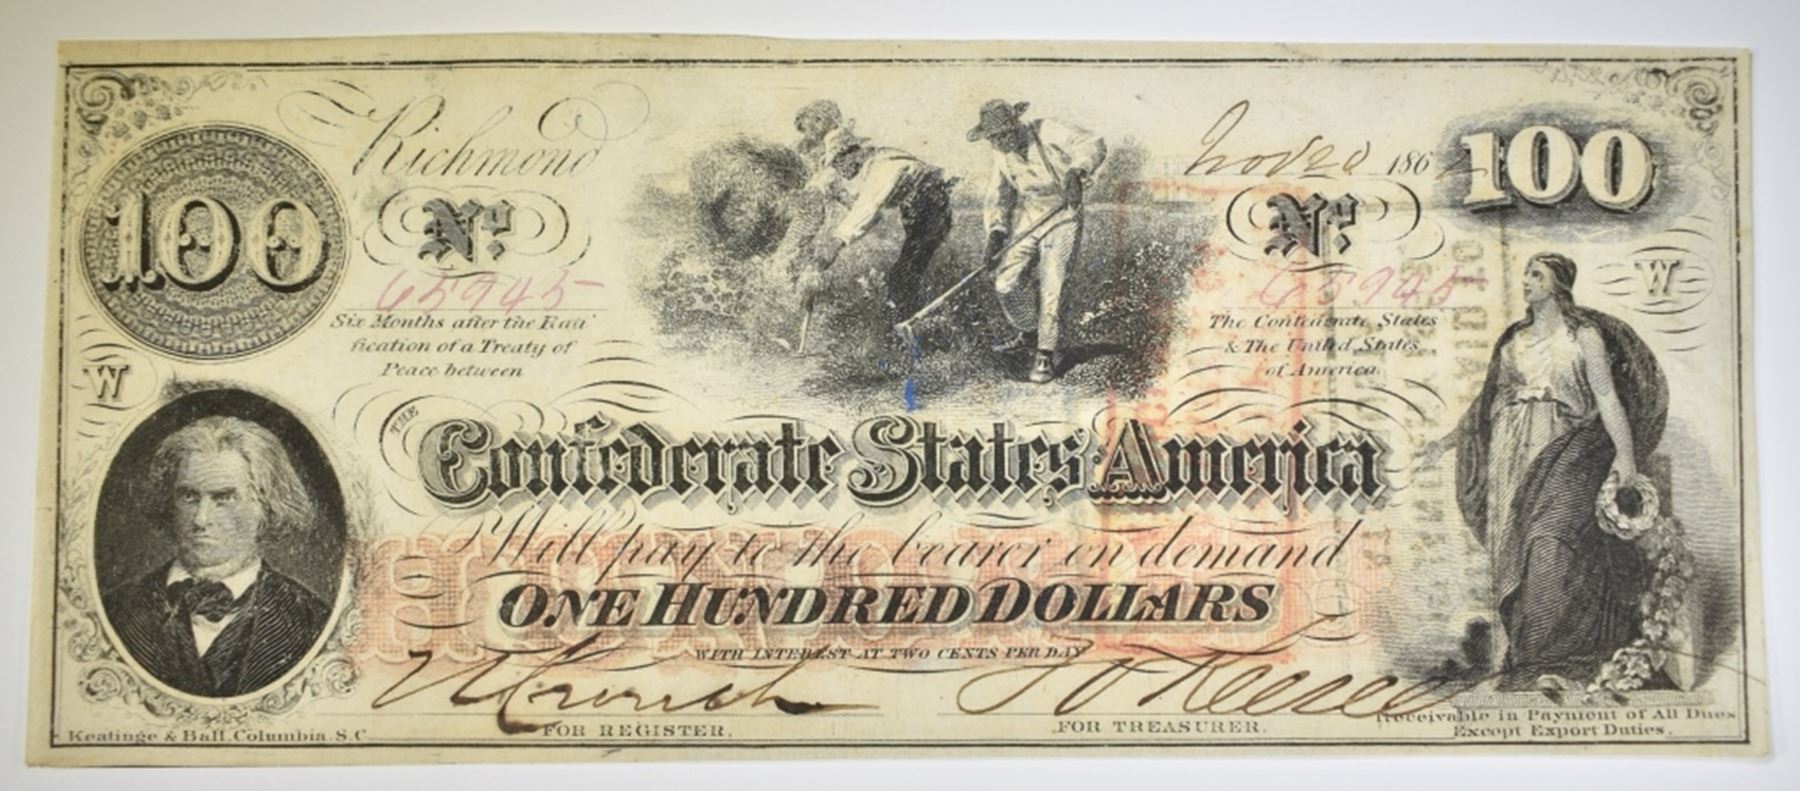 Richmond
Nov 20 1862
100
100
No.
No.
65945
65945
W
Six Months after the Rati
fication of a Treaty of
Peace between
The Confederate States
& The United States
of America.
W
THE
Confederate States America
Will pay to the bearer on demand
HUNDRED
ONE HUNDRED DOLLARS
WITH INTEREST AT TWO CENTS PER DAY
FOR REGISTER.
FOR TREASURER.
Receivable in Payment of All Dues
Except Export Duties.
Keatinge & Ball, Columbia, S.C.